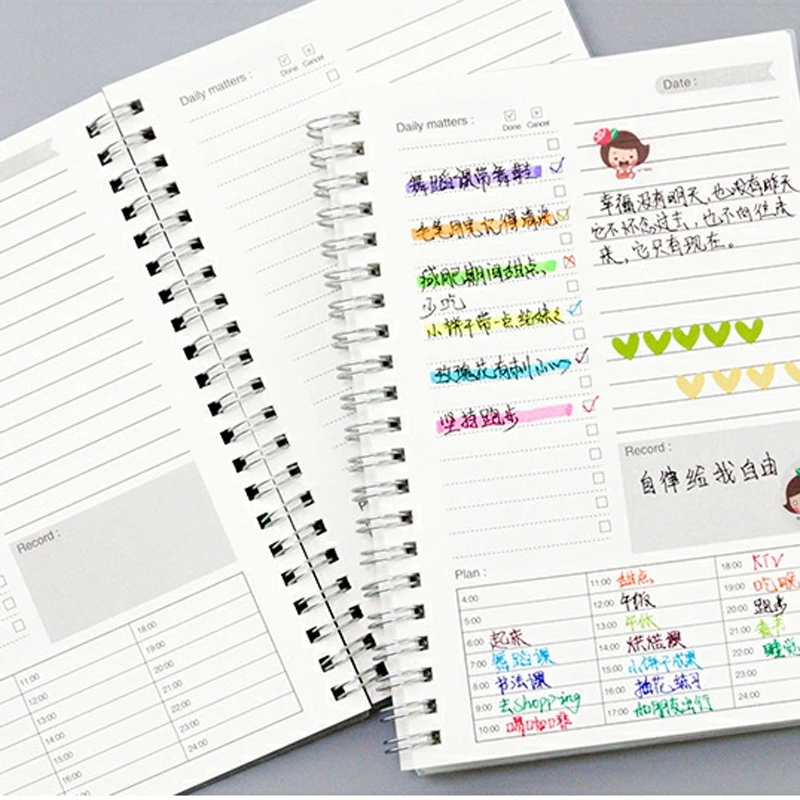 Daily matters :
Done
Cancel
Record :
18:00
19:00
20:00
21:00
22:00
23:00
24:00
11:00
12:00
13:00
14:00
15:00
16:00
Daily matters :
Done
Cancel
舞蹈课带舞鞋
毛笔用完记得清洗
减肥期间甜点、
少吃
小饼干带一点给妹
玫瑰花有刺小心
坚持跑步
Date :
幸福没有明天,也没有昨天
它不怀念过去,也不向往未
来,它只有现在。
Record :
自律给我自由
Plan :
4:00
5:00
6:00 起床
7:00 舞蹈课
8:00 书法课
9:00 去shopping
10:00 喝咖啡
11:00 甜点
12:00 午饭
13:00 午休
14:00 烘焙课
15:00 小饼干成果
16:00 插花练习
17:00 和朋友出行
18:00 KTV
19:00 吃晚
20:00 跑步
21:00 看书
22:00 睡觉
23:00
24:00